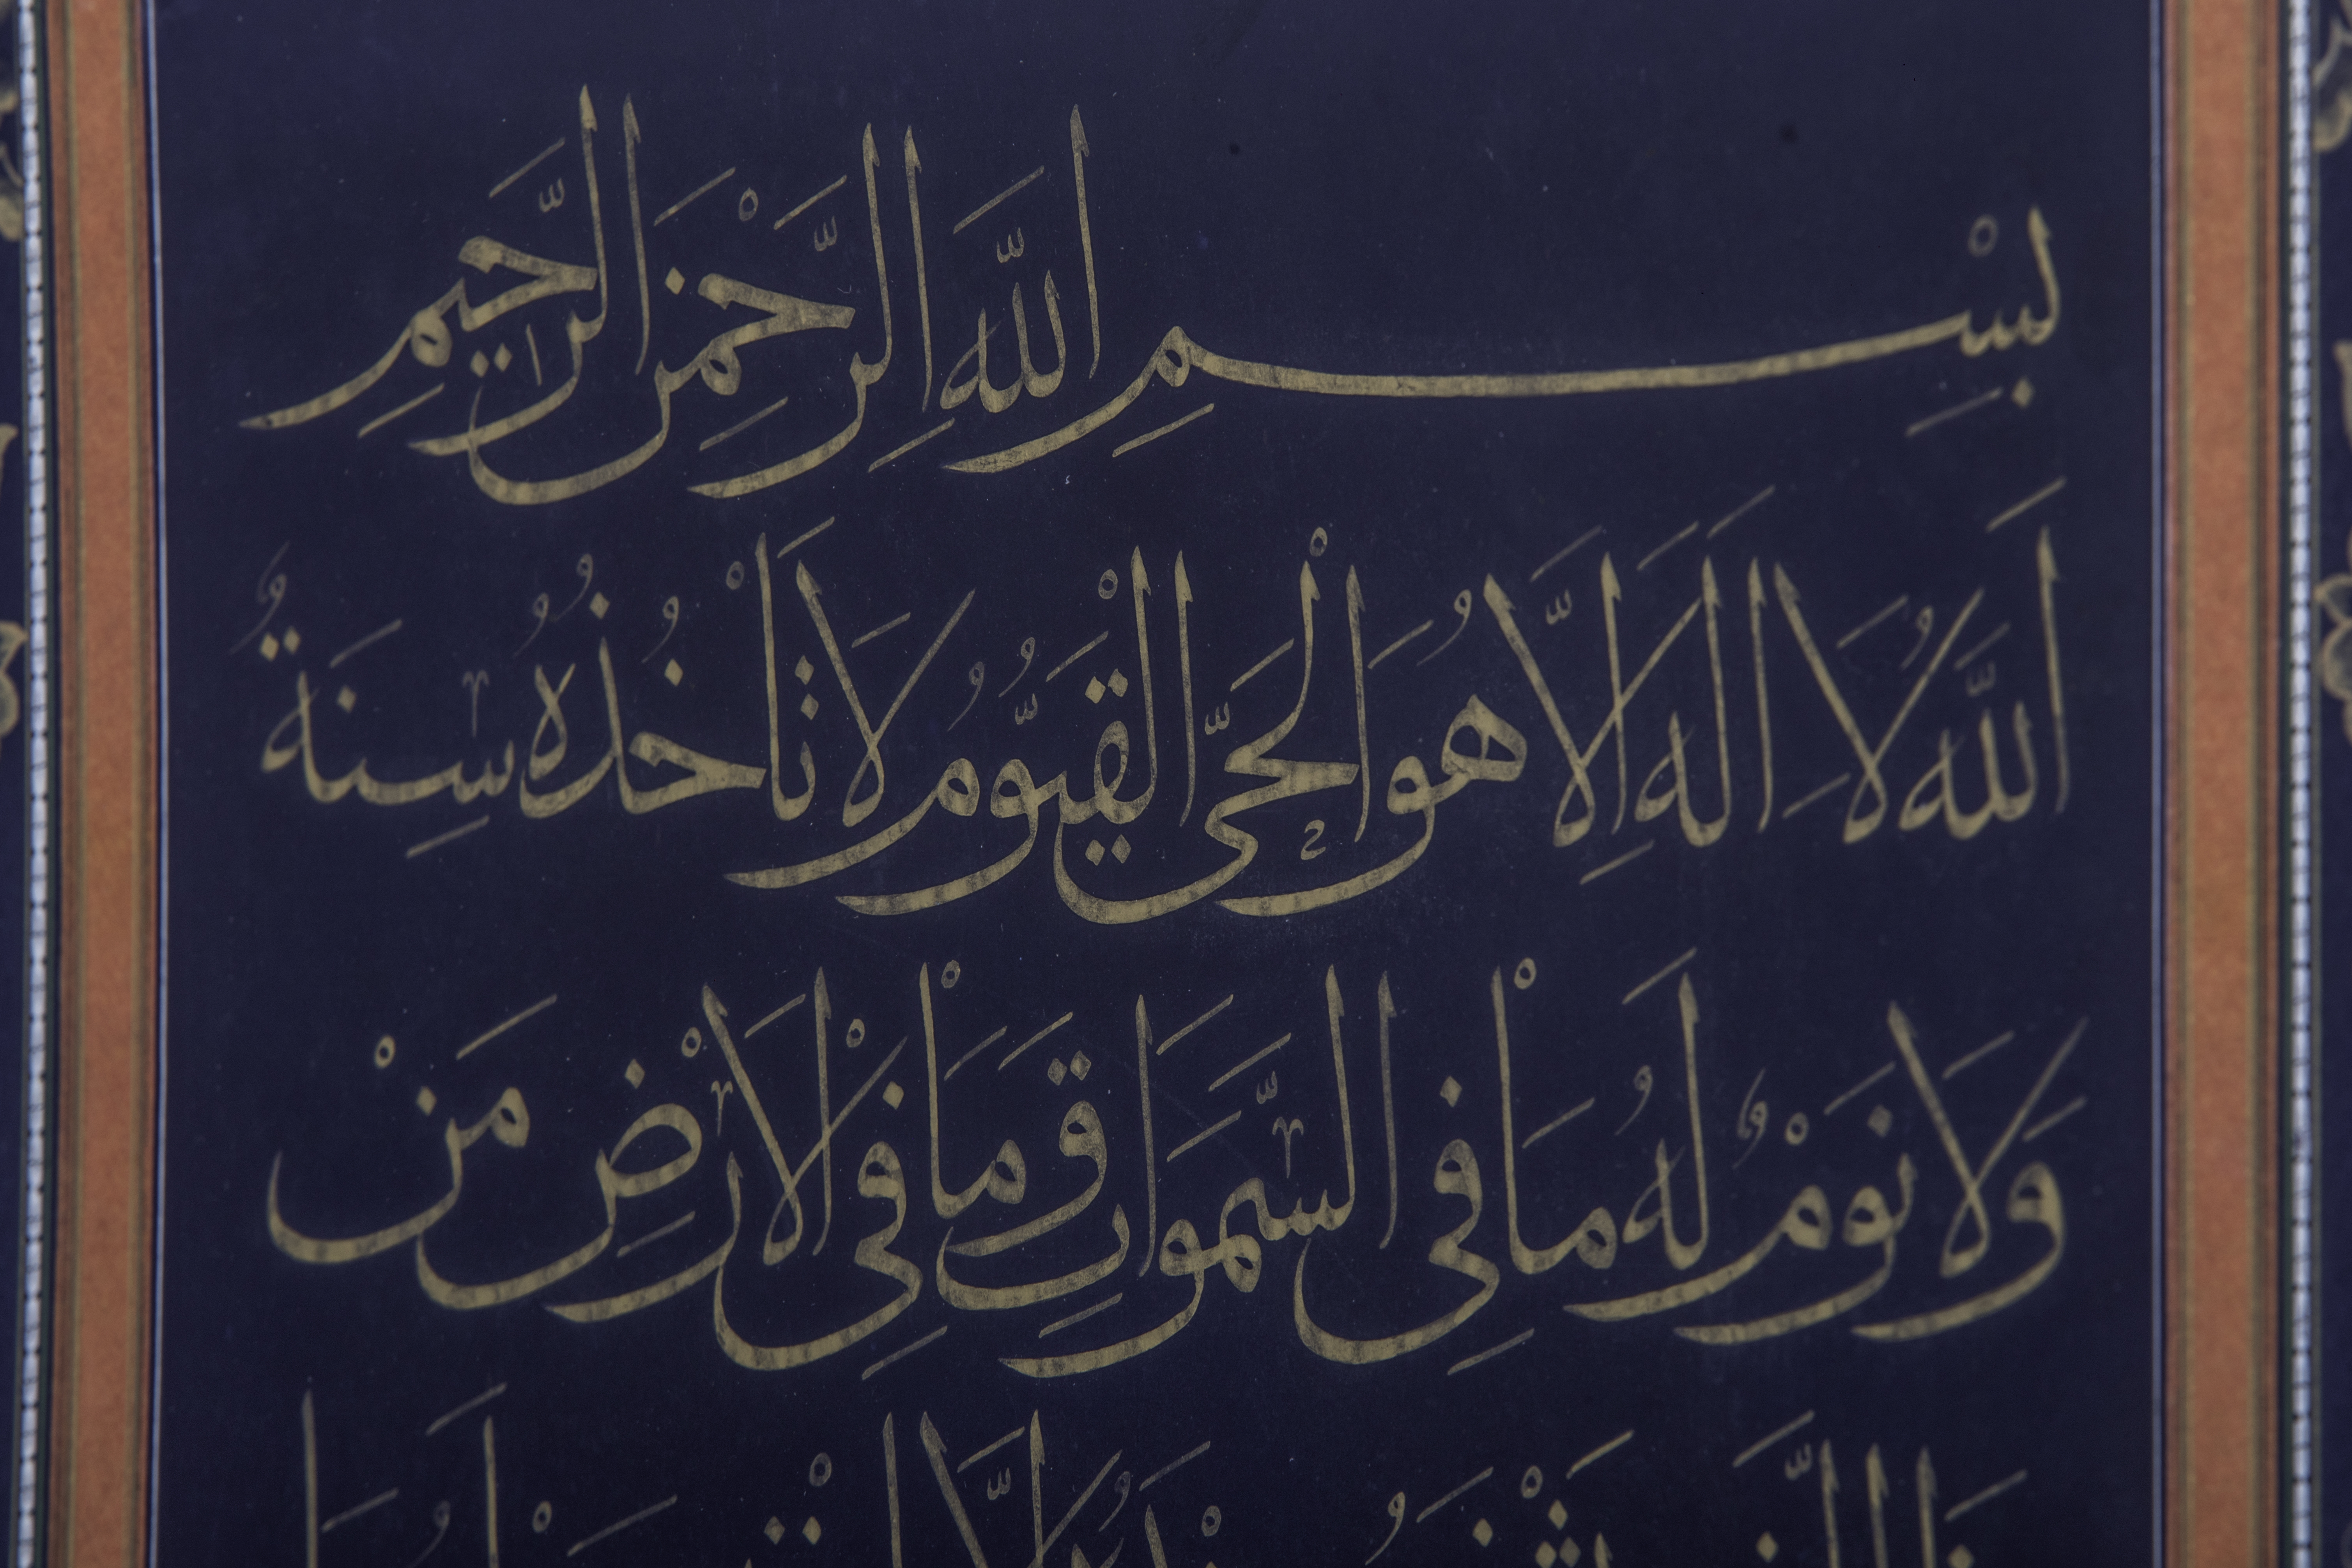 بِسْمِ اللَّهِ الرَّحْمَنِ الرَّحِيمِ
اَللَّهُ لَا اِلَهَ اِلَّا هُوَ الْحَىُّ الْقَيُّومُ لَا تَاْخُذُهُ سِنَةٌ
وَلَا نَوْمٌ لَهُ مَا فِى السَّمَوَاتِ وَمَا فِى الْاَرْضِ مَنْ
ذَا الَّذِى يَشْفَعُ عِنْدَهُ اِلَّا